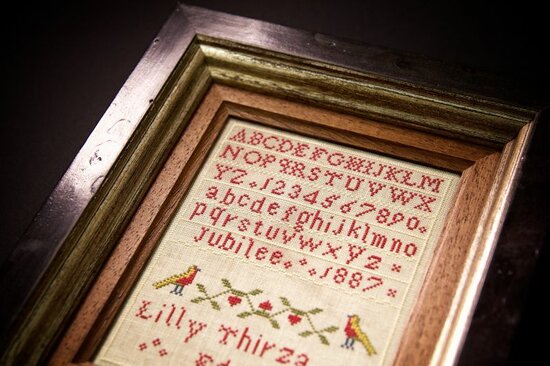 ABCDEFGHIJKLM
NOPQRSTUVWX
YZ.1234567890.
abcdefghijklmno
pqrstuvwxyz
Jubilee. 1887
Lilly Thirza